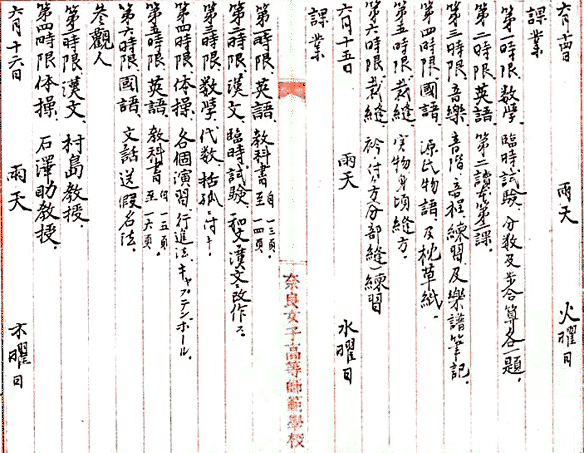 六月十四日　雨天　火曜日
課業
第一時限、数學、臨時試験、分数及歩合算各一題。
第二時限、英語、第二讀本第一課。
第三時限、音樂、音階、音程、練習、及樂譜筆記。
第四時限、國語、源氏物語及枕草紙。
第五時限、裁縫、実物身頃縫方。
第六時限、裁縫、衿付方（部分縫）練習
六月十五日　雨天　水曜日
課業
奈良女子高等師範學校
第一時限、英語、教科書自一三頁至一四頁。
第二時限、漢文、臨時試験、和文漢文改作
第三時限、数學、代数、括弧
第四時限、体操、各個演習、行進法、キャプテンボール。
第五時限、英語、教科書自一五頁至一六頁。
第六時限、國語、文話、送假名法。
参觀人
第二時限、漢文、村島教授。
第四時限、体操、石澤助教授。
六月十六日　雨天　木曜日